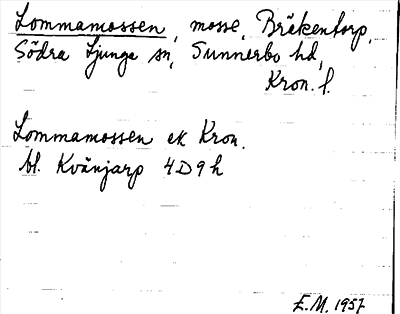 Lommamossen, mosse, Bräkentorp,
Södra Ljunga sn, Sunnerbo hd,
Kron. l.
Lommamossen ek Kron.
bl. Kvänjarp 4D9h
E.M. 1957